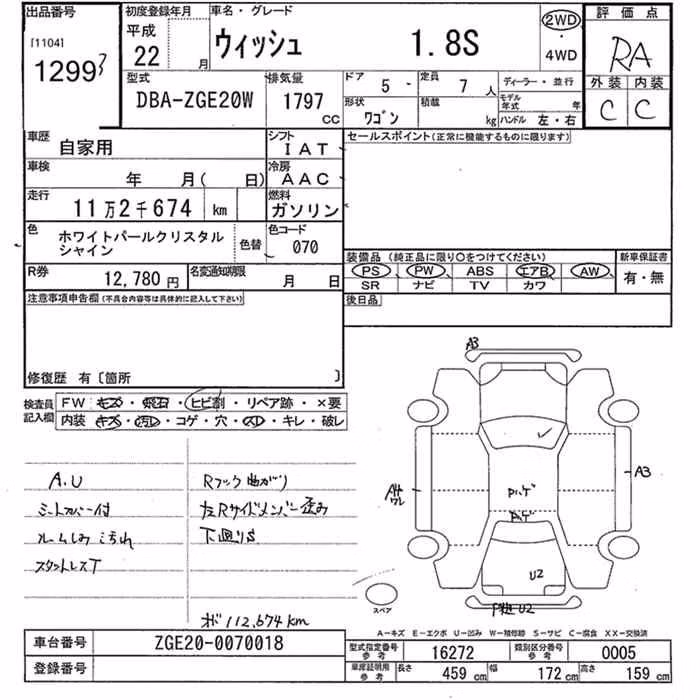 出品番号 初度登録年月 車名・グレード 評価点
[1104] 平成 ウィッシュ 1.8S 2WD RA
12993 22 月 ・ 4WD
型式 排気量 ドア 5 定員 7 人 ディーラー・並行 外装 内装
DBA-ZGE20W 1797 cc 形状 ワゴン 積載 kg モデル年式 年 C C
ハンドル 左・右
車歴 自家用 シフト IAT セールスポイント(正常に機能するものに限ります)
車検 年 月( 日) 冷房 AAC
走行 11万2千674 km 燃料 ガソリン
色 ホワイトパールクリスタル 色替 色コード 070
シャイン
装備品(純正品に限り○をつけてください) 新車保証書
R券 12,780円 名変通知期限 月 日 PS PW ABS エアB AW 有・無
SR ナビ TV カワ
注意事項申告欄(不具合内容等は具体的に記入して下さい) 後日品
修復歴 有〔箇所 〕
検査員 FW キズ・飛石・ヒビ割・リペア跡・×要
記入欄 内装 キズ・汚れ・コゲ・穴・スリ・キレ・破レ
A3
A.U Rフック曲がり
シートカバー付 左Rサイドメンバー歪み
ルームしみ汚れ 下廻りS
スタットレスT
A3
U2
U2
スペア
オド112,674km
A-キズ E-エクボ U-凹み W-補修跡 S-サビ C-腐食 XX-交換済
車台番号 ZGE20-0070018
型式指定番号 参考 16272 類別区分番号 参考 0005
登録番号
車庫証明用 参考 長さ 459 cm 幅 172 cm 高さ 159 cm